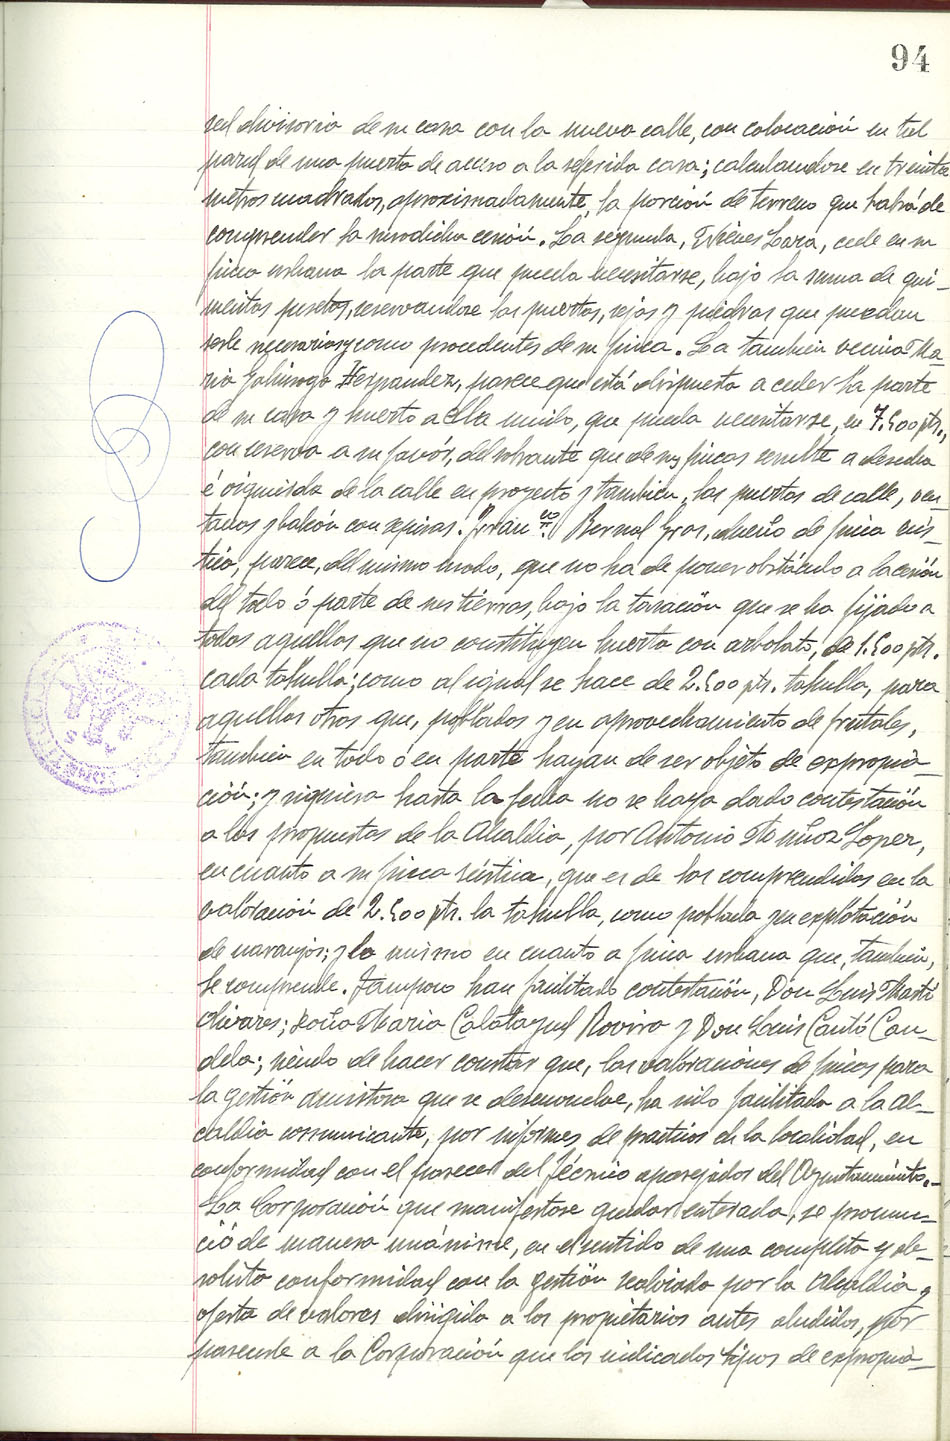 94
red divisoria de su casa con la nueva calle, con colocación en tal
pared de una puerta de acceso a la referida casa; calculandose en treinta
metros cuadrados, aproximadamente, la porción de terreno que habrá de
comprender la susodicha cesión. La segunda, Nieves Lara, cede en su
finca urbana la parte que pueda necesitarse, bajo la suma de qui-
nientas pesetas, reservandose las puertas, rejas y piedras que puedan
serle necesarias y como procedentes de su finca. La tambien vecina Ma-
ria Hernandez, parece que está dispuesta a ceder la parte
de su casa y huerto a ella unido, que pueda necesitarse, en 7.500 pts.,
con reserva a su favór, del sobrante que de sus fincas resulte a derecha
é izquierda de la calle en proyecto y tambien, las puertas de calle, ven-
tanas y balcón con repisas. Franco. Bernal Gras, dueño de finca rús-
tica, parece, del mismo modo, que no ha de poner obstáculo a la cesión
del todo ó parte de sus tierras, bajo la tasación que se ha fijado a
todas aquellas que no constituyen huerta con arbolado, de 1.500 pts.
cada tahulla; como al igual se hace de 2.500 pts. tahulla, para
aquellas otras que, pobladas y en aprovechamiento de frutales,
tambien en todo ó en parte hayan de ser objeto de expropia-
ción; y siquiera hasta la fecha no se haya dado contestación
a las propuestas de la Alcaldia, por Antonio Muñoz Lopez,
en cuanto a su finca rústica, que es de las comprendidas en la
valoración de 2.500 pts. la tahulla, como poblada y en explotación
de naranjos; y lo mismo en cuanto a finca urbana que, tambien,
se comprende. Tampoco han facilitado contestación, Don Luis Martí
Olivares; Doña Maria Calatayud Rovira y Don Luis Cantó Can-
dela; siendo de hacer constar que, las valoraciones de fincas para
la gestión amistosa que se desenvuelve, ha sido facilitada a la Al-
caldia comunicante, por informes de practicos de la localidad, en
conformidad con el parecer del Técnico aparejador del Ayuntamiento.-
La Corporación que manifestose quedar enterada, se pronun-
ció de manera unánime, en el sentido de una completa y ab-
soluta conformidad con la gestión realizada por la Alcaldia y
oferta de valores dirigida a los propietarios antes aludidos, por
parecerle a la Corporación que los indicados tipos de expropia-